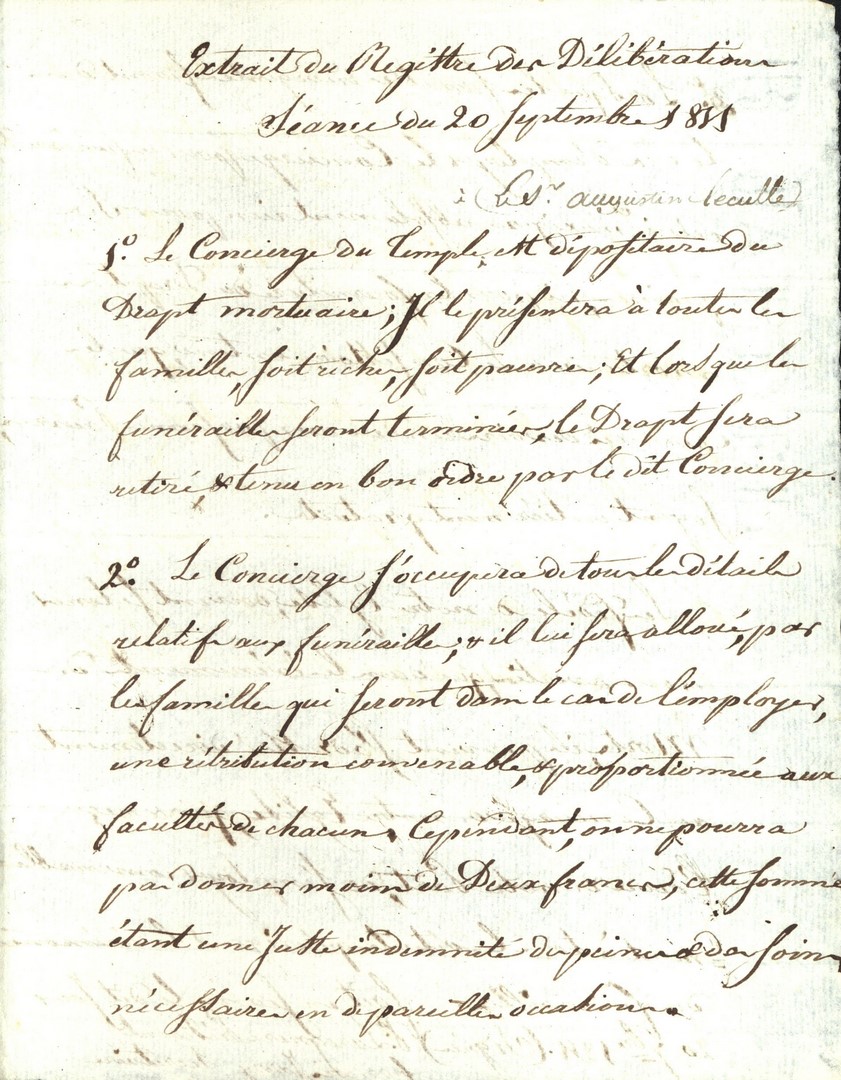 Extrait du Registre des Délibérations
Séance du 20 Septembre 1811
à (Le Sr. augustin lecutte)
1º. Le Concierge du Temple, est dépositaire du
Drapt mortuaire; Il le présentera à toutes les
familles, soit riches, soit pauvres; Et lorsque les
funérailles seront terminées, le Drapt sera
retiré, & tenu en bon ordre par le dit Concierge.
2º. Le Concierge s'occupera de tous les détails
relatifs aux funérailles; & il lui sera alloué, par
les familles qui seront dans le cas de l'employer,
une rétribution convenable, & proportionnée aux
facultés de chacun. Cependant, on ne pourra
pas donner moins de Deux francs, cette somme
étant une Juste indemnité des peines & des soins
nécessaires en de pareilles occasions.